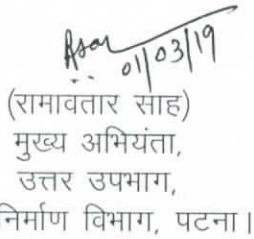 01/03/19
(रामावतार साह)
मुख्य अभियंता,
उत्तर उपभाग,
निर्माण विभाग, पटना।